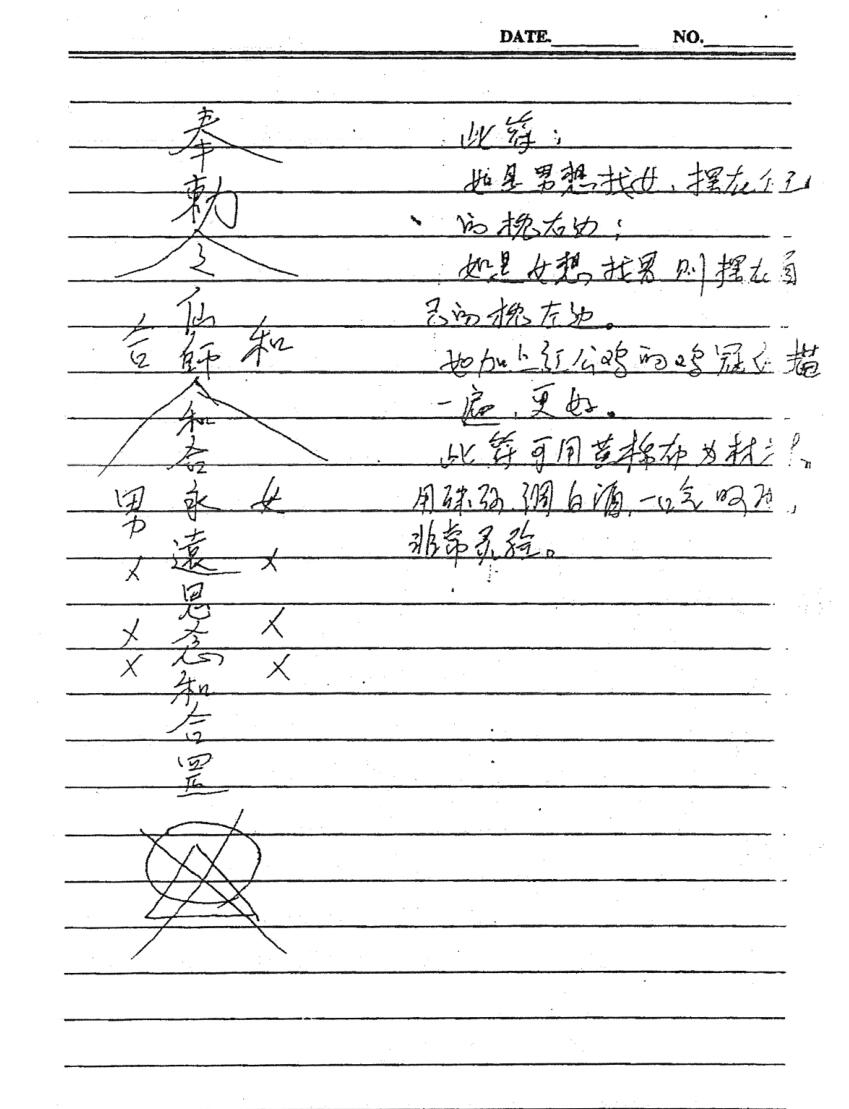 DATE. NO.
奉
勅
之
仙
合 師 和
和
合
男 永 女
× 遠 ×
思
× 念 ×
× ×
和
合
罡
此符；
如是男想找女，摆在自己
的枕右边；
如是女想找男则摆在自
己的枕左边。
加上红公鸡的鸡冠 描
一遍，更好。
此符可用黄棉布为材料。
用硃砂调白酒，一口气
非常灵验。